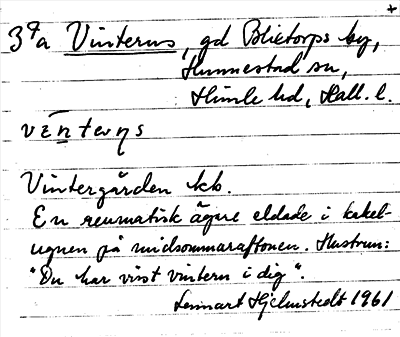 +
3ªa Vinterns, gd Blixtorps by,
Hunnestad sn,
Himle hd, Hall. l.
vɛ̄ntəɳs
Vintergården kb.
En reumatisk ägare eldade i kakel-
ugnen på midsommaraftonen. Hustrun:
"Du har visst vintern i dig".
Lennart Hjelmstedt 1961